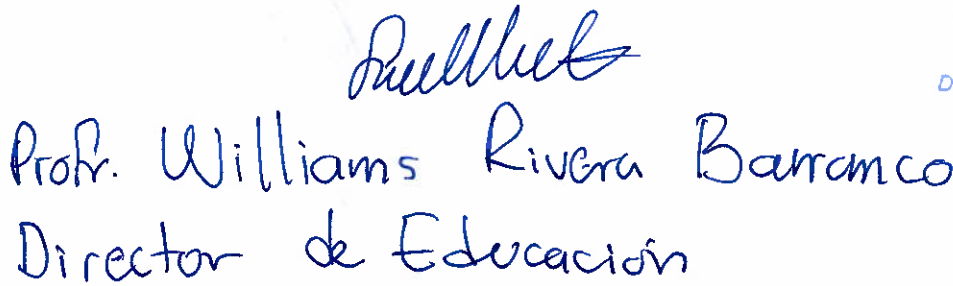 Profr. Williams Rivera Barranco
Director de Educación